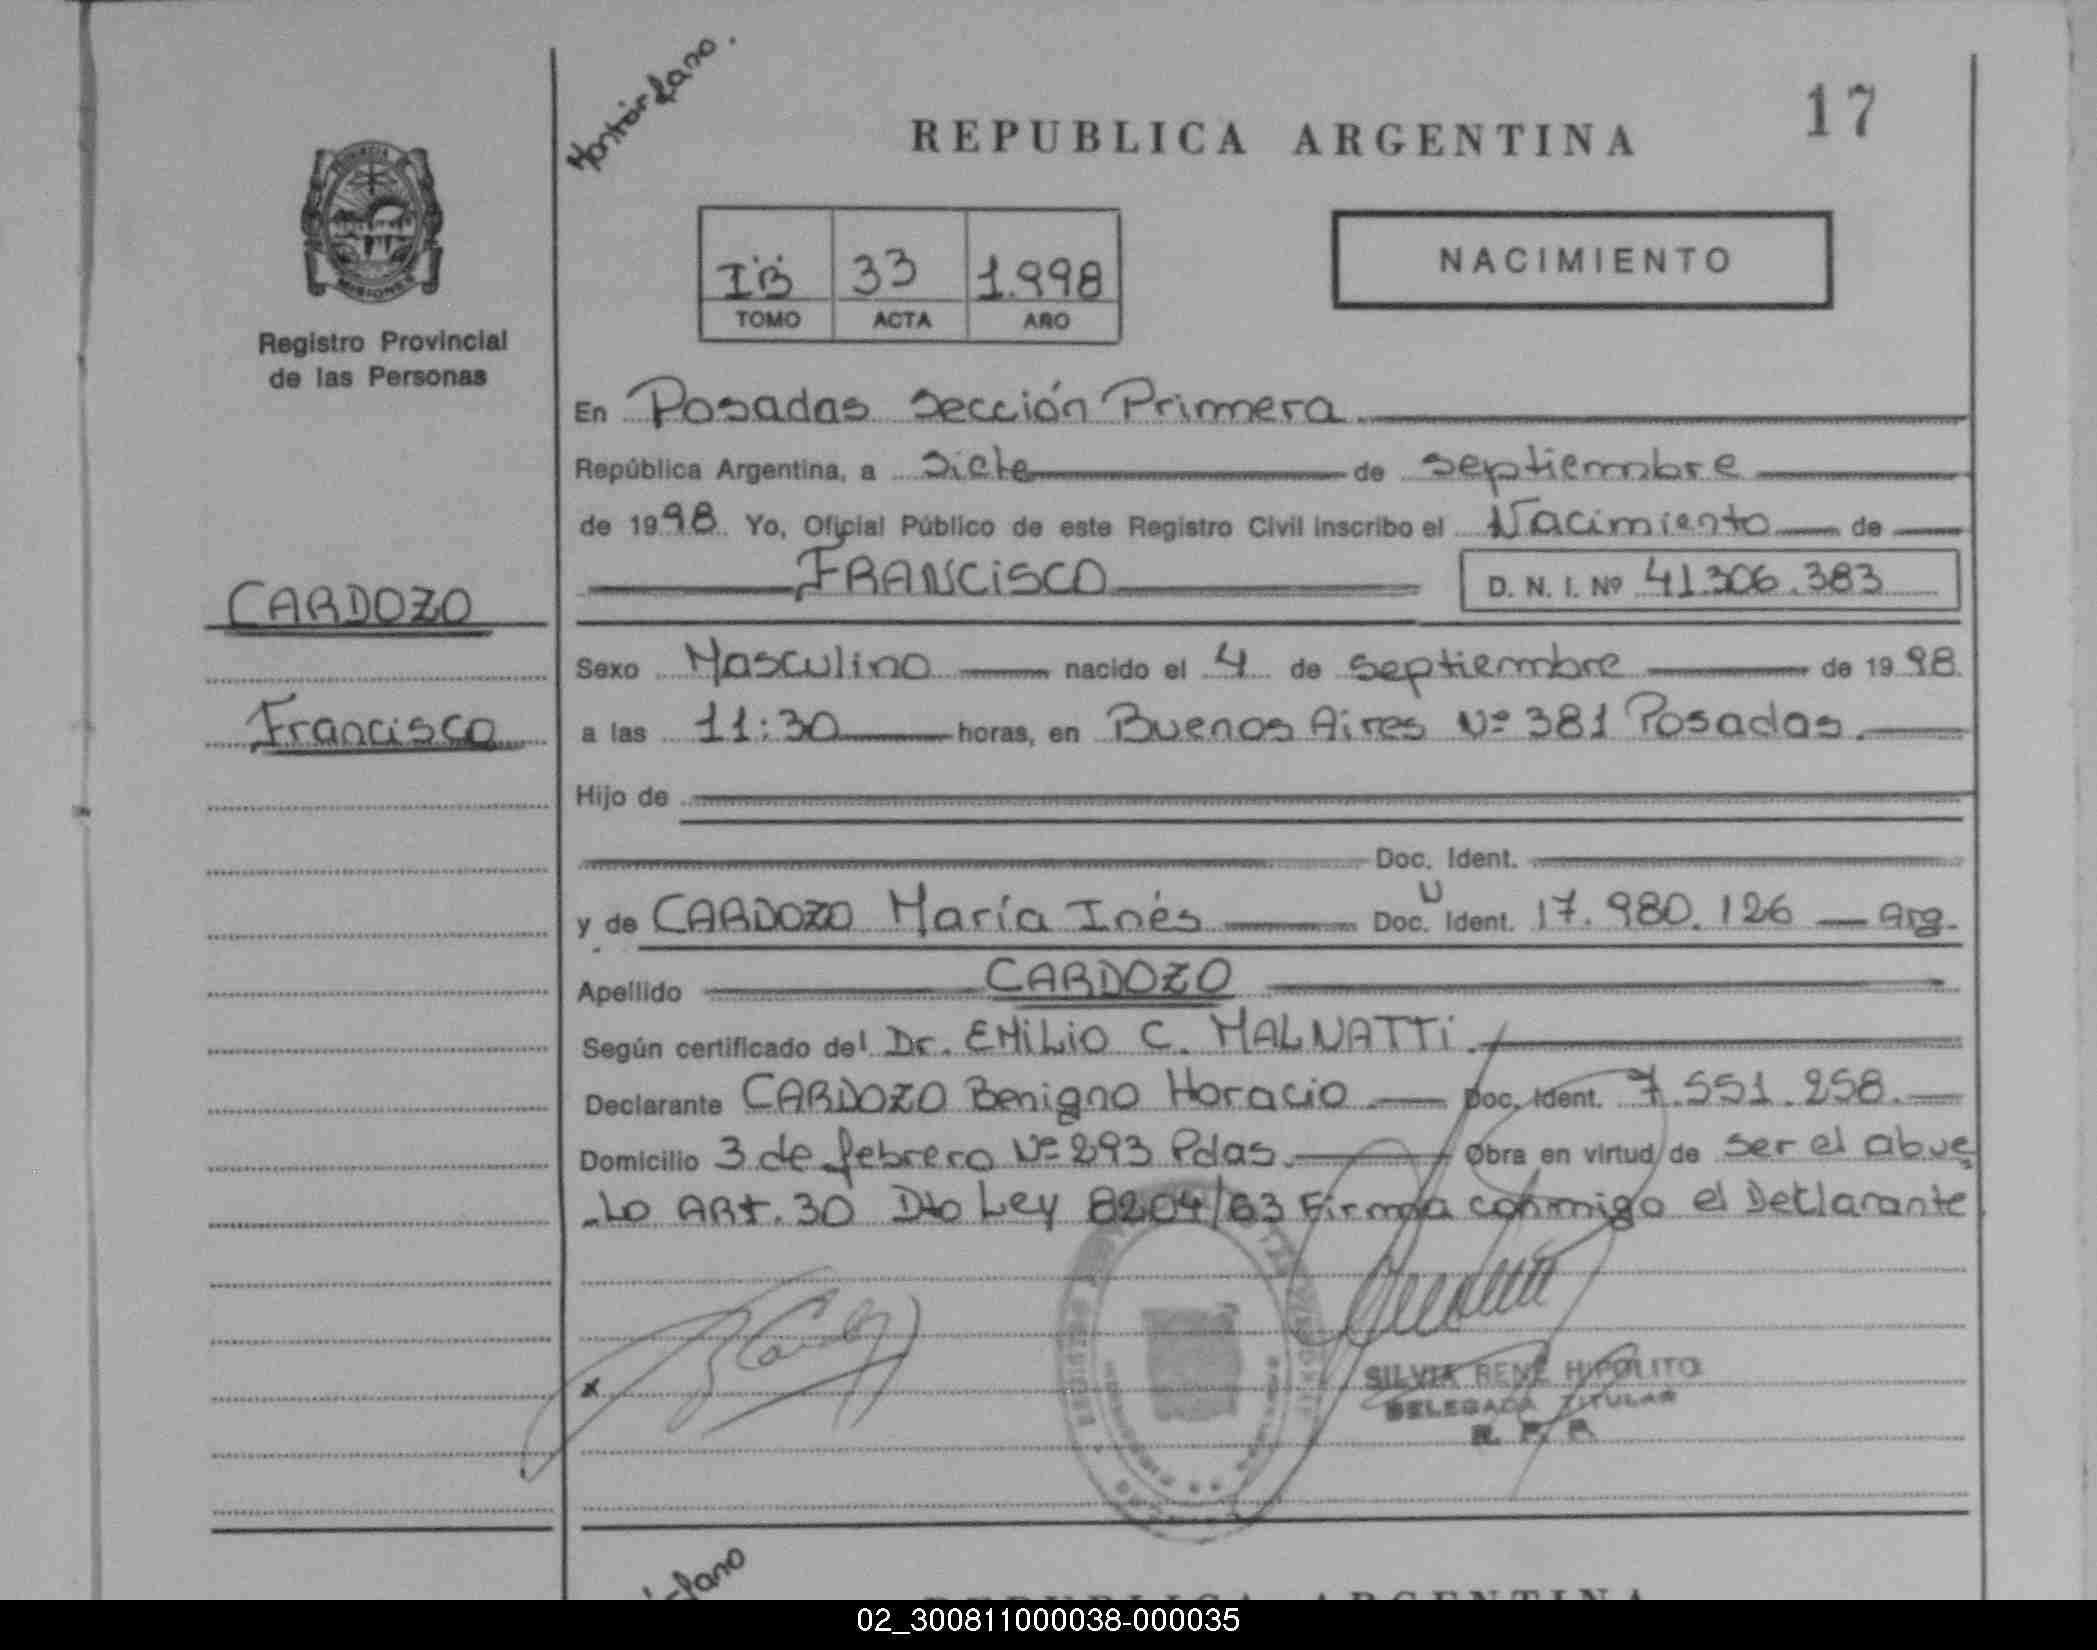 Montórfano.
REPUBLICA ARGENTINA
17
PROVINCIA
MISIONES
Registro Provincial
de las Personas
IB 33 1.998
TOMO ACTA AÑO
NACIMIENTO
En Posadas Sección Primera
República Argentina, a Siete de Septiembre
de 1998 Yo, Oficial Público de este Registro Civil inscribo el Nacimiento de
FRANCISCO D. N. I. Nº 41.306.383
CARDOZO
Francisco
Sexo Masculino nacido el 4 de Septiembre de 1998.
a las 11:30 horas, en Buenos Aires Nº 381 Posadas.
Hijo de
Doc. Ident.
y de CARDOZO María Inés Doc. U Ident. 17.980.126 — Arg.
Apellido CARDOZO
Según certificado del Dr. EMILIO C. MALNATTI.
Declarante CARDOZO Benigno Horacio Doc. Ident. 7.551.258.
Domicilio 3 de febrero Nº 293 Pdas. Obra en virtud de Ser el abue
Lo ARt. 30 Dto Ley 8204/63 Firma conmigo el Declarante
x
SILVIA RENÉ HIPOLITO
DELEGADA TITULAR
R. P. P.
REPUBLICA ARGENTINA
02_300811000038-000035